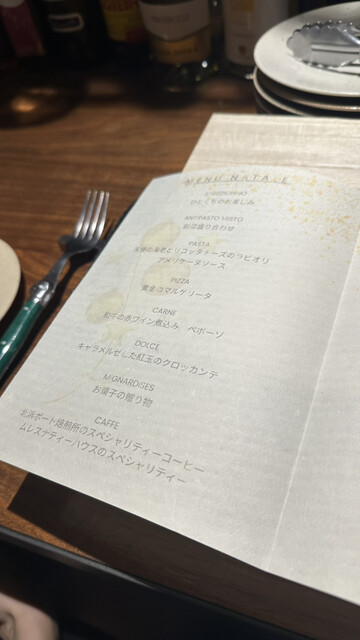 MENU NATALE
STUZZICHINO
ひとくちのお楽しみ
ANTIPASTO MISTO
前菜盛り合わせ
PASTA
海老とリコッタチーズのラビオリ
アメリケーヌソース
PIZZA
黄金のマルゲリータ
CARNE
和牛の赤ワイン煮込み ペポーゾ
DOLCE
キャラメルゼした紅玉のクロッカンテ
MIGNARDISES
お菓子の贈り物
CAFFE
北浜ポート焙煎所のスペシャリティーコーヒー
ムレスナティーハウスのスペシャリティー